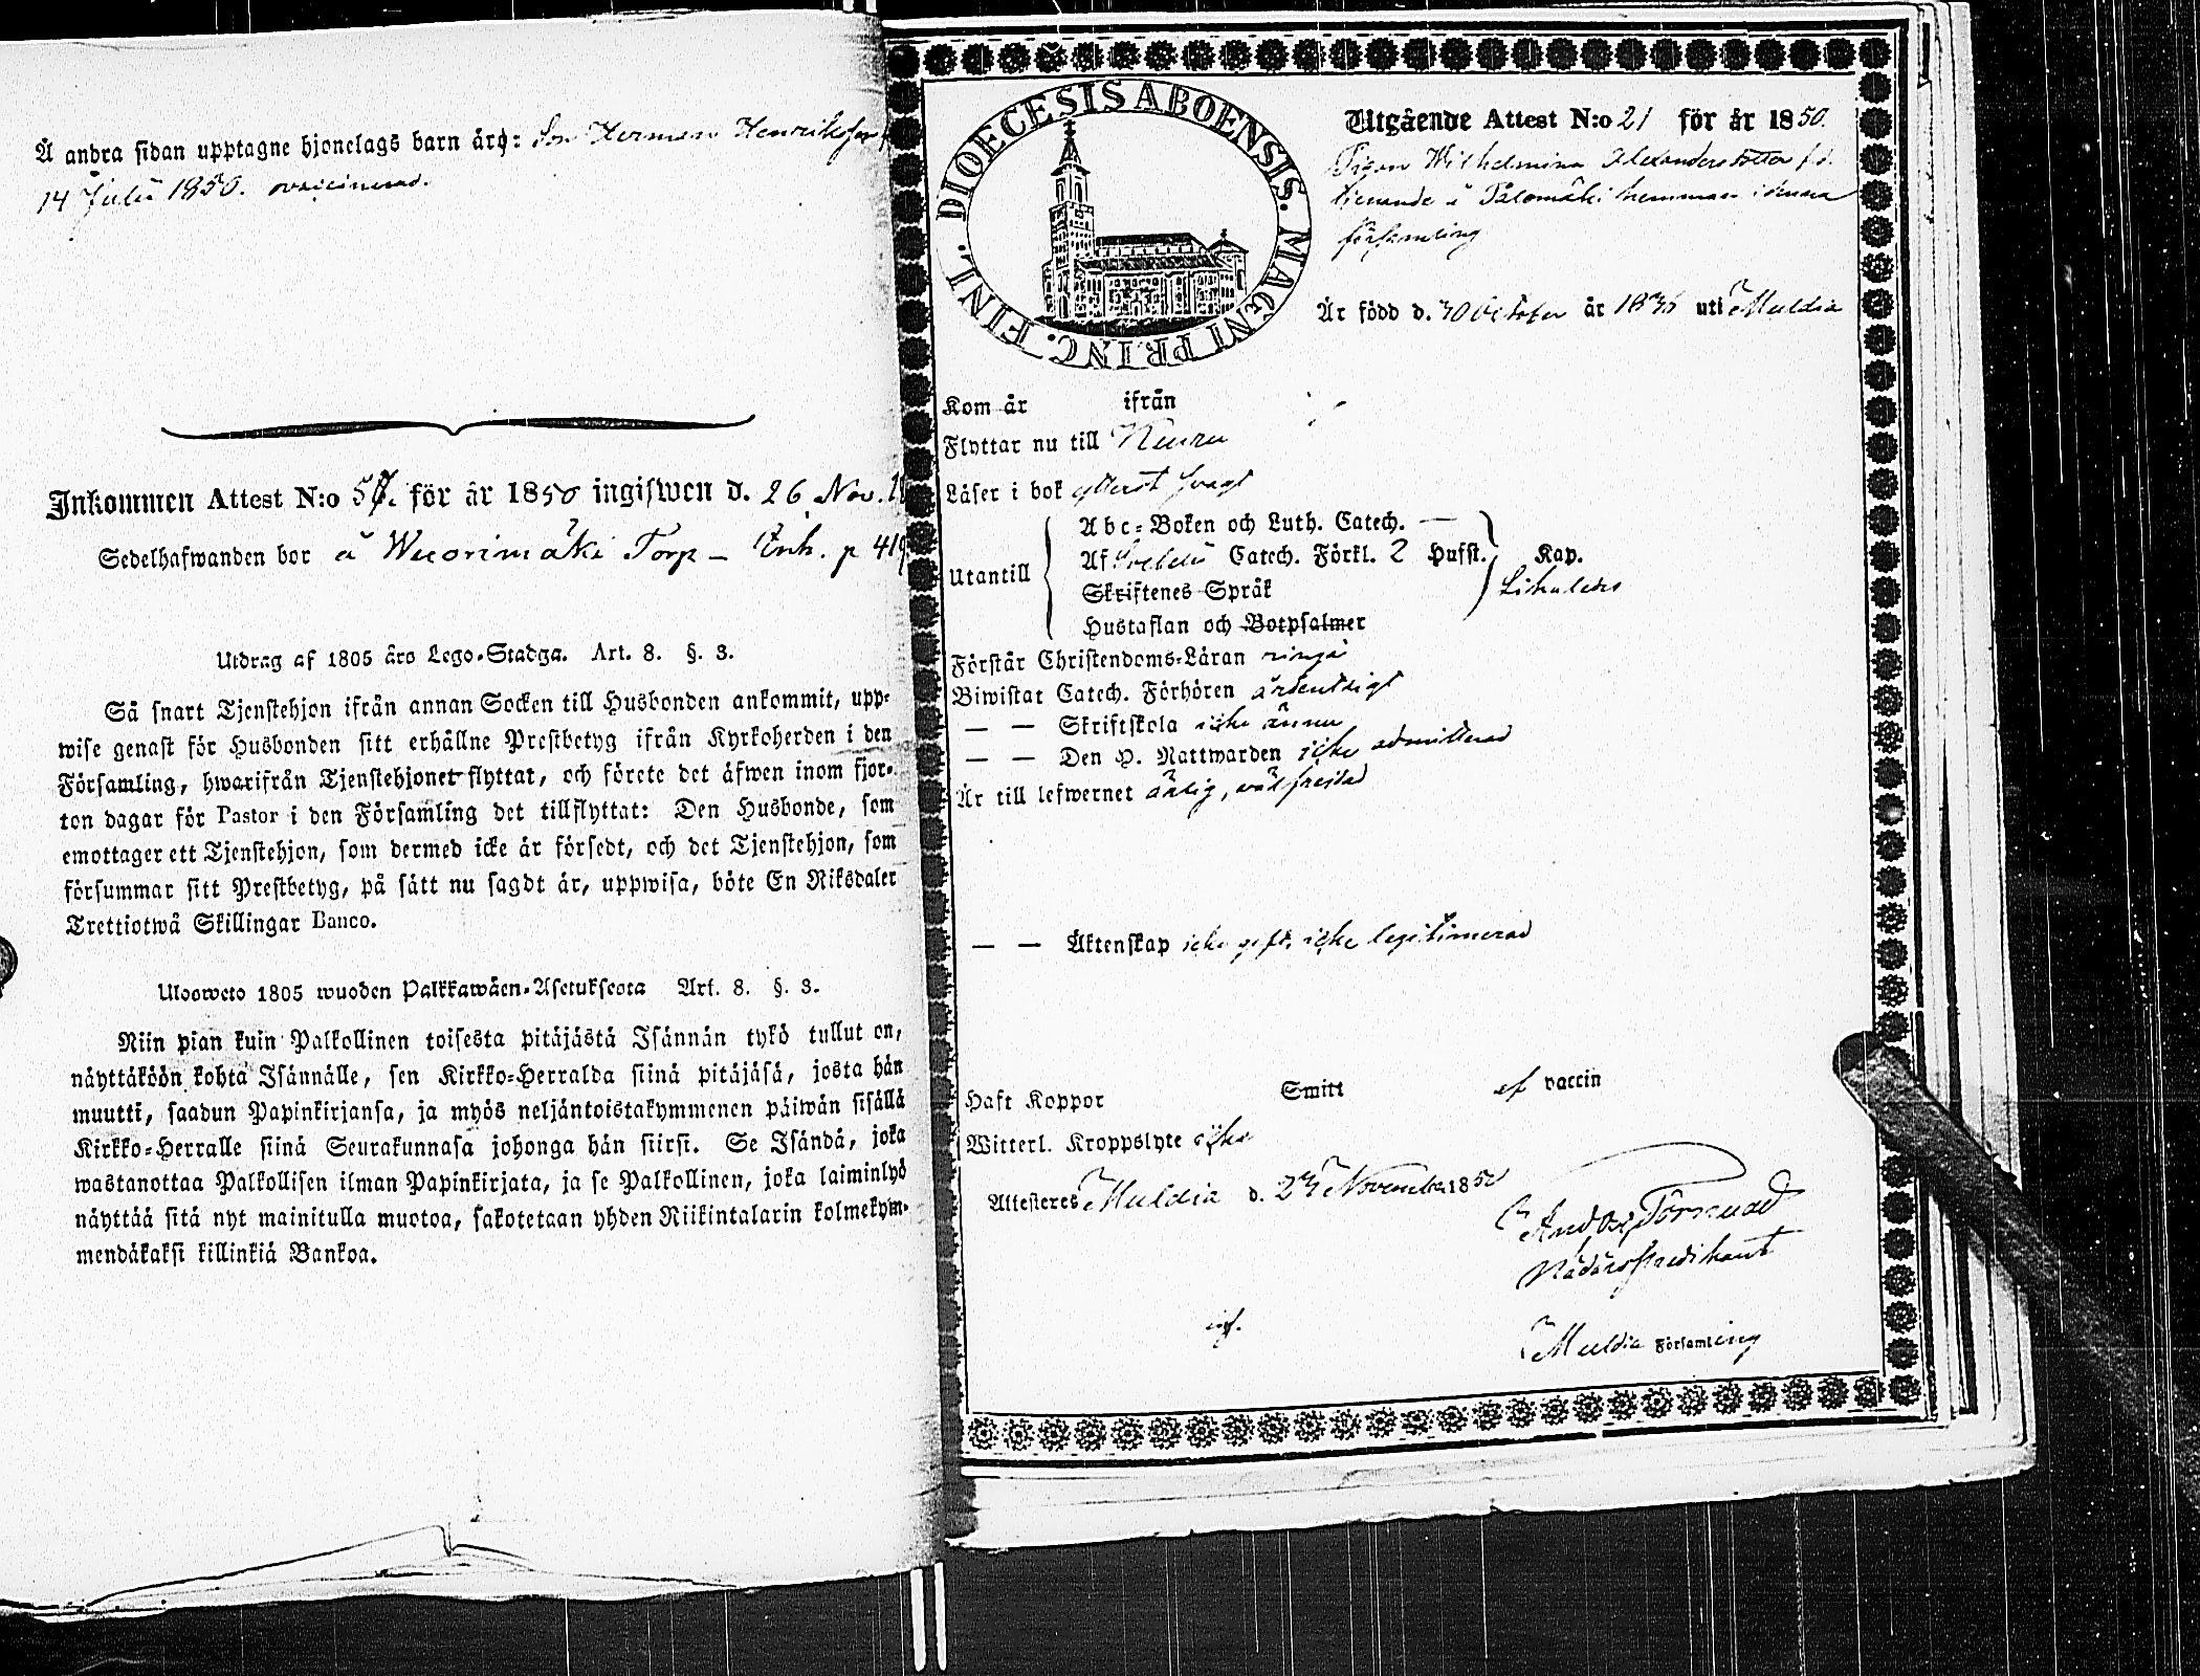 Å andra sidan upptagne hjonelags barn äro: Son Herman Henriksson
14 Julii 1850. ovaccinerad.
Inkommen Attest N:o 57. för år 1850 ingifwen d. 26 Nov.
Sedelhafwanden bor å Wuorimäki Torp – Inh. p 419
Utdrag af 1805 års Lego-Stadga. Art. 8. §. 3.
Så snart Tjenstehjon ifrån annan Socken till Husbonden ankommit, upp-
wise genast för Husbonden sitt erhållne Prestbetyg ifrån Kyrkoherden i den
Församling, hwarifrån Tjenstehjonet flyttat, och förete det äfwen inom fjor-
ton dagar för Pastor i den Församling det tillflyttat: Den Husbonde, som
emottager ett Tjenstehjon, som dermed icke är försedt, och det Tjenstehjon, som
försummar sitt Prestbetyg, på sätt nu sagdt är, uppwisa, böte En Riksdaler
Trettiotwå Skillingar Banco.
Uloosweto 1805 wuoden Palkkawäen-Asetuksesta Art. 8. §. 3.
Niin pian kuin Palkollinen toisesta pitäjästä Isännän tykö tullut on,
näyttäköön kohta Isännälle, sen Kirkko-Herralda siinä pitäjäsä, josta hän
muutti, saadun Papinkirjansa, ja myös neljäntoistakymmenen päiwän sisällä
Kirkko-Herralle siinä Seurakunnasa johonga hän siirsi. Se Isändä, joka
wastanottaa Palkollisen ilman Papinkirjata, ja se Palkollinen, joka laiminlyö
näyttää sitä nyt mainitulla muotoa, sakotetaan yhden Riikintalarin kolmekym-
mendäkaksi killinkiä Bankoa.
DIOECESIS ABOENSIS. MAGNI PRINC. FINL.
Utgående Attest N:o 21 för år 1850.
Pigan Wilhelmina Alexandersdotter f.d.
tjenande å Palomäki hemman i denna
församling
Är född d. 30 October år 1835 uti Muldia
Kom år ifrån
Flyttar nu till Keuru
Läser i bok ytterst swagt
Abc-Boken och Luth. Catech. —
Utantill Af Svebelii Catech. Förkl. 2 Hufst. Kap.
Skriftenes Språk
Hustaflan och Botpsalmer
Förstår Christendoms-Läran ringa
Biwistat Catech. Förhören ordentligt
— — Skriftskola icke ännu
— — Den H. Nattwarden icke admitterad
Är till lefwernet ärlig, wälfrejdad
— — Äktenskap icke gift, icke legitimerad
Haft Koppor Smitt af vaccin
Witterl. Kroppslyte icke
Attesteres Muldia d. 24 November 1850
And. Törnudd
Nådårspredikant
Muldia Församling